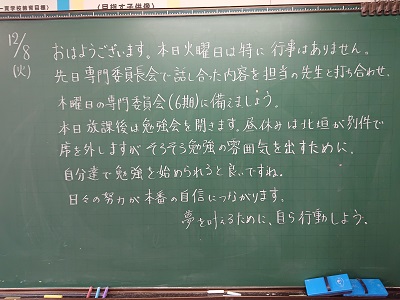 一貫学校教育目標)
(目指す子供像)
12/8
(火)
おはようございます。本日火曜日は特に行事はありません。
先日専門委員長会で話し合った内容を担当の先生と打ち合わせ、
木曜日の専門委員会(6期)に備えましょう。
本日放課後は勉強会を開きます。昼休みは北垣が別件で
席を外しますが そろそろ勉強の雰囲気を出すために、
自分達で勉強を始められると良いですね。
日々の努力が本番の自信につながります。
夢を叶えるために、自ら行動しよう。